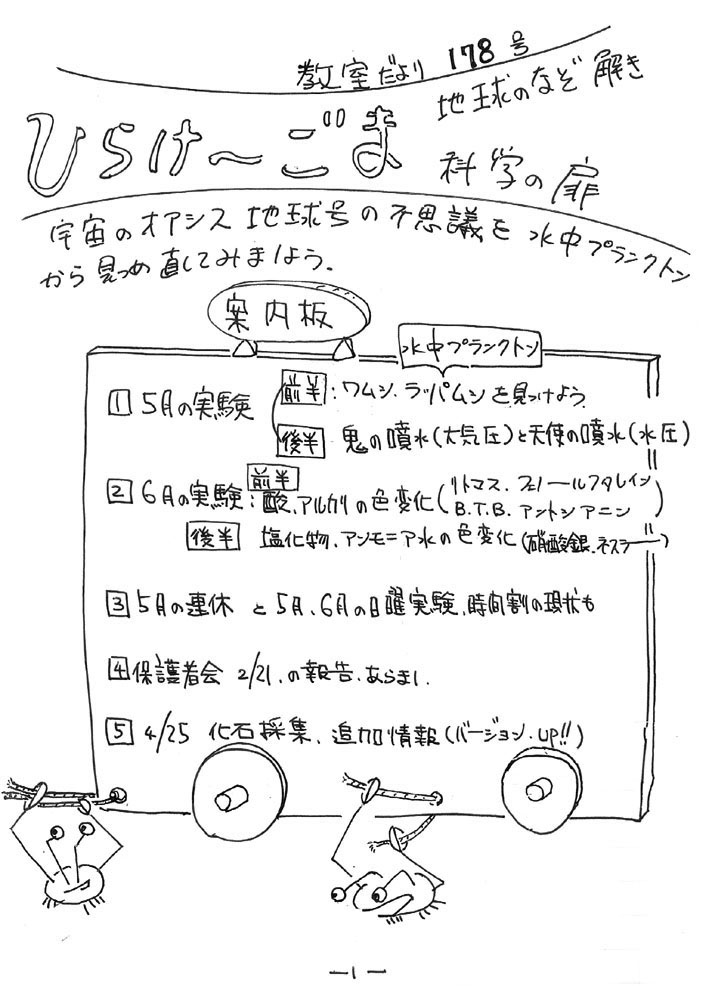 教室だより 178号
ひらけ〜ごま
地球のなぞ解き
科学の扉
宇宙のオアシス地球号の不思議を水中プランクトン
から見つめ直してみましょう。
案内板
水中プランクトン
1 5月の実験 前半：ワムシ、ラッパムシを見つけよう
後半 鬼の噴水(大気圧)と天使の噴水(水圧)
2 6月の実験：前半 酸、アルカリの色変化(リトマス、フェノールフタレイン
B.T.B. アントシアニン)
後半 塩化物、アンモニア水の色変化(硝酸銀、ネスラー)
3 5月の連休 と5月、6月の日曜実験、時間割の現状も
4 保護者会 2/21、の報告、あらまし、
5 4/25 化石採集、追加情報(バージョン・up!!)
—1—